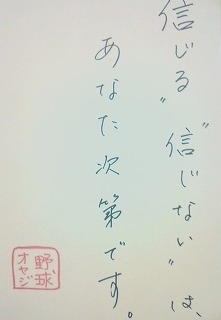 信じる〝信じない〞は、
あなた次第です。
野球
オヤジ